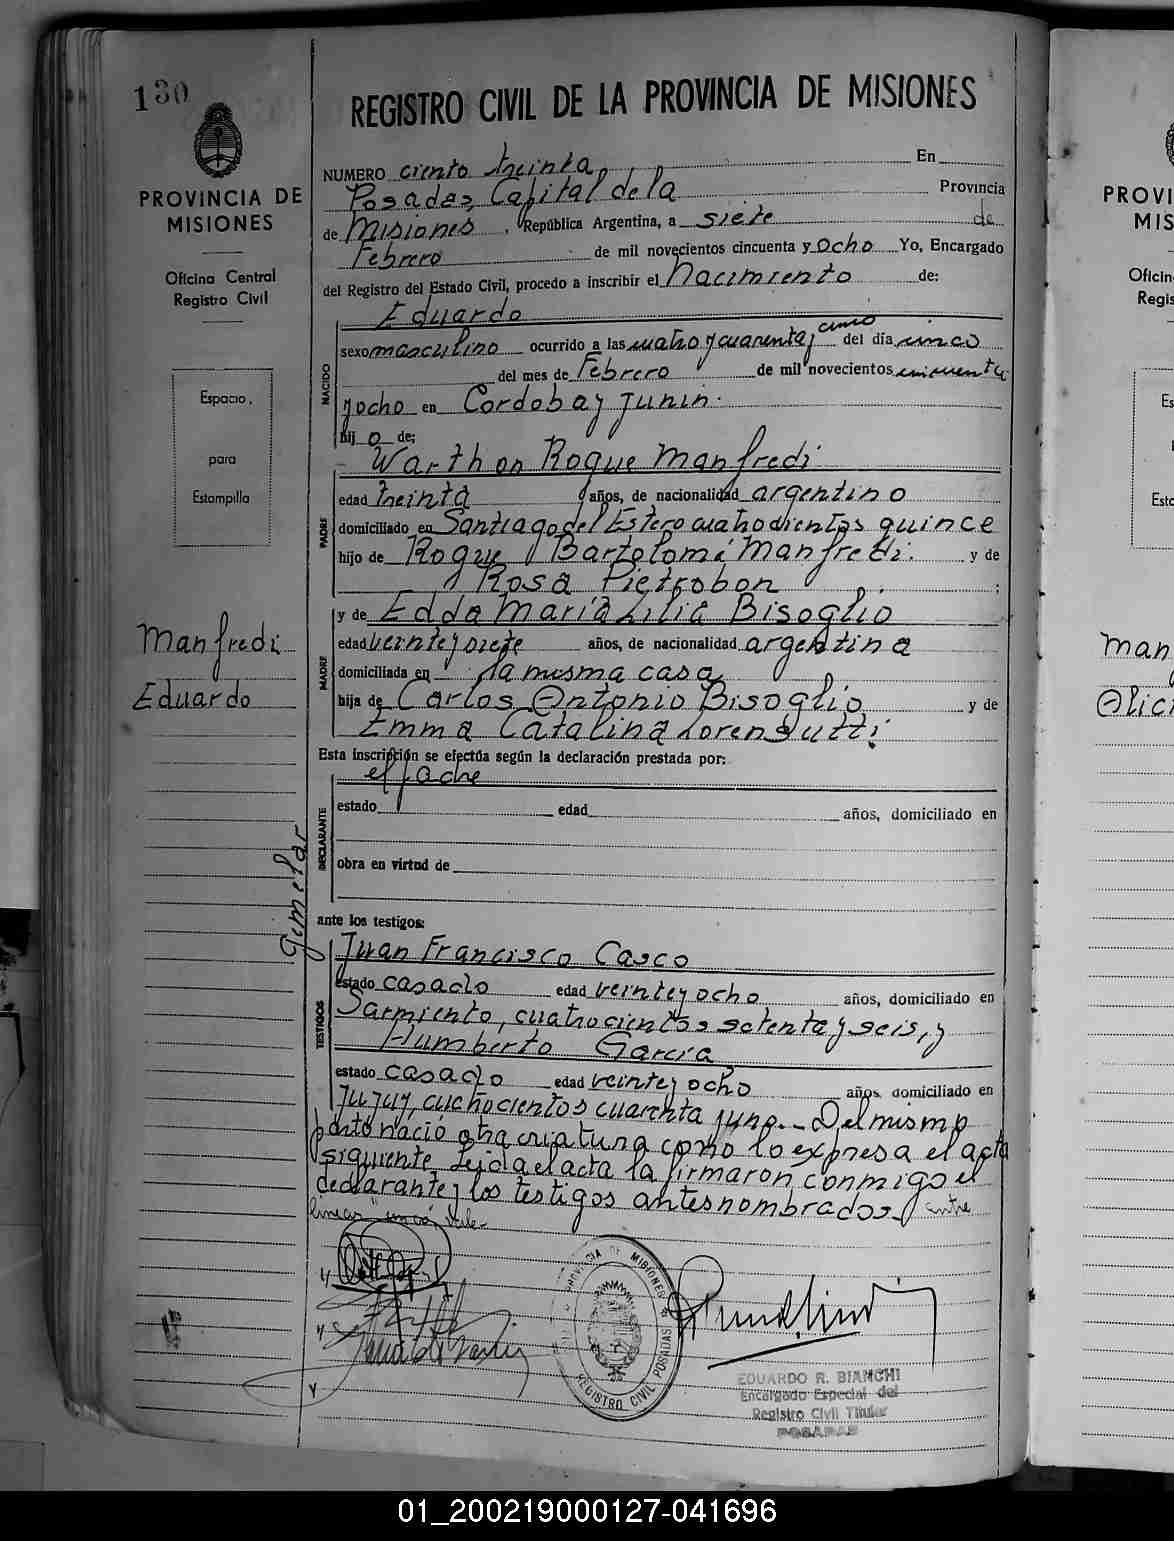 130
REGISTRO CIVIL DE LA PROVINCIA DE MISIONES
PROVINCIA DE
MISIONES
Oficina Central
Registro Civil
Espacio
para
Estampilla
NUMERO ciento treinta En
Posadas, Capital de la Provincia
de Misiones, República Argentina, a siete de
Febrero de mil novecientos cincuenta y ocho Yo, Encargado
del Registro del Estado Civil, procedo a inscribir el Nacimiento de:
Eduardo
NACIDO
sexo masculino ocurrido a las cuatro y cuarenta y cinco del día cinco
del mes de Febrero de mil novecientos cincuenta
y ocho en Cordoba y Junin.
hijo de;
Warthon Roque Manfredi
PADRE
edad treinta años, de nacionalidad argentino
domiciliado en Santiago del Estero cuatrocientos quince
hijo de Roque Bartolomé Manfredi. y de
Rosa Pietrobon;
Manfredi
Eduardo
MADRE
y de Edda María Lilia Bisoglio
edad veinte y siete años, de nacionalidad argentina
domiciliada en la misma casa
hija de Carlos Antonio Bisoglio y de
Emma Catalina Lorensutti;
Esta inscripción se efectúa según la declaración prestada por:
el padre
DECLARANTE
estado edad años, domiciliado en
obra en virtud de
Gemelar
ante los testigos:
TESTIGOS
Juan Francisco Casco
estado casado edad veinte y ocho años, domiciliado en
Sarmiento, cuatrocientos setenta y seis, y
Humberto García
estado casado edad veinte y ocho años, domiciliado en
Jujuy, ochocientos cuarenta y uno.- Del mismo
parto nació otra criatura como lo expresa el acta
siguiente. Leida el acta la firmaron conmigo el
declarante y los testigos antes nombrados. entre
lineas "cinco" vale-
PROVINCIA DE MISIONES
REGISTRO CIVIL POSADAS
EDUARDO R. BIANCHI
Encargado Especial del
Registro Civil Titular
POSADAS
PROVI
MIS
Oficin
Regis
Es
Esta
Man
Alici
01_200219000127-041696